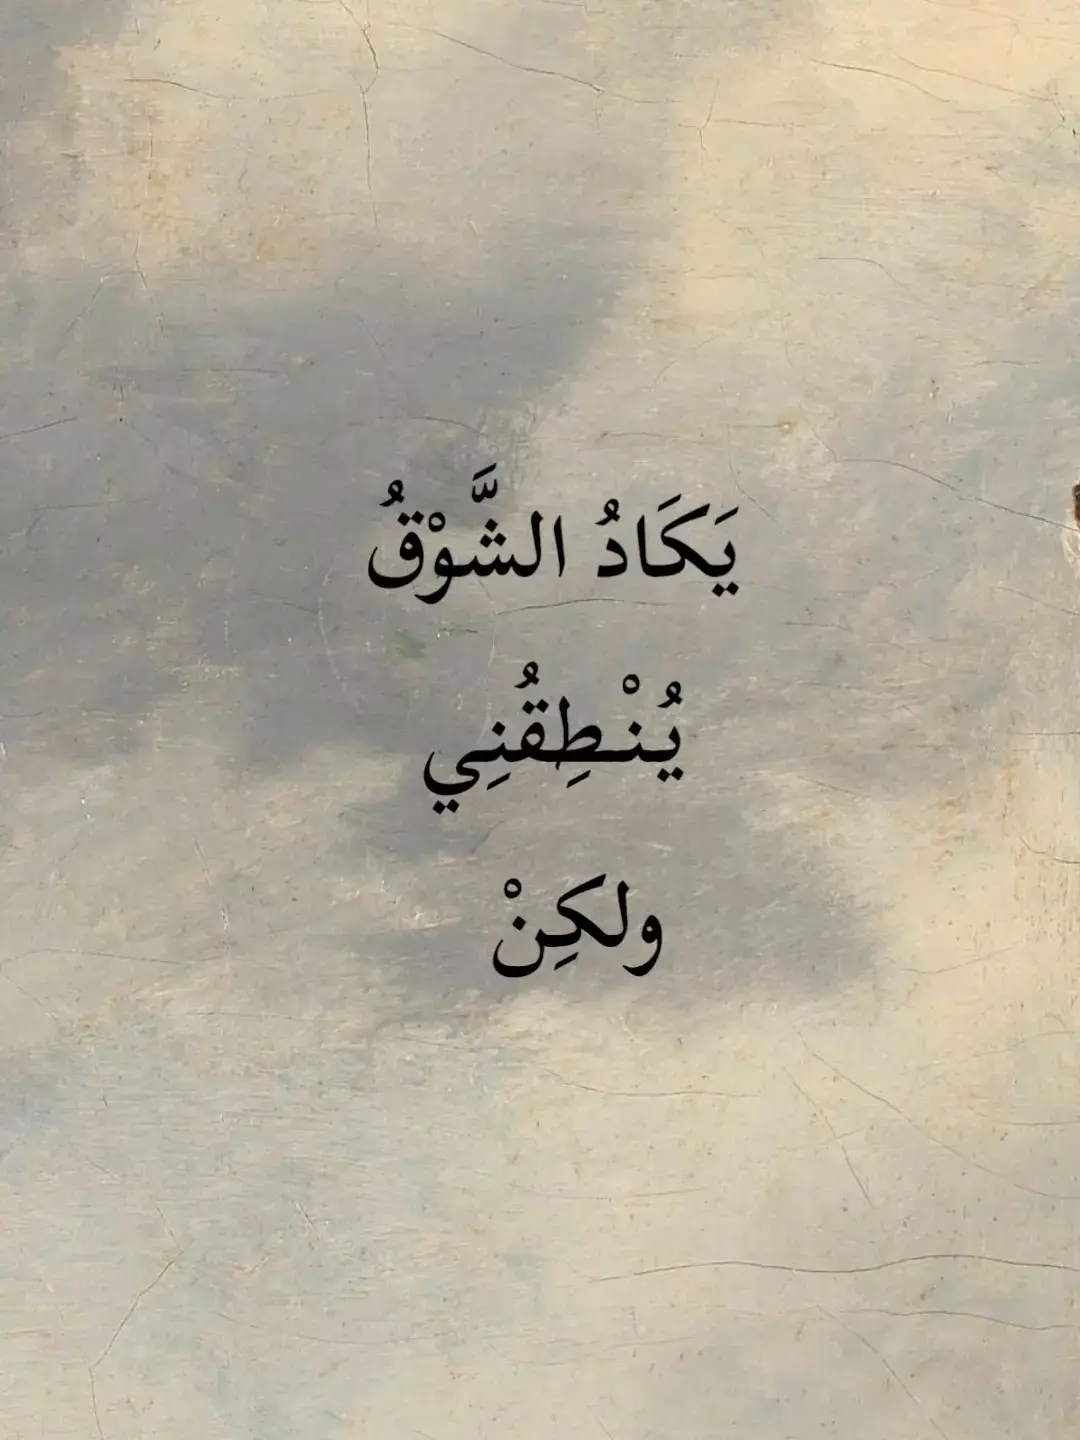 يَكَادُ الشَّوْقُ
يُنْطِقُنِي
ولكِنْ